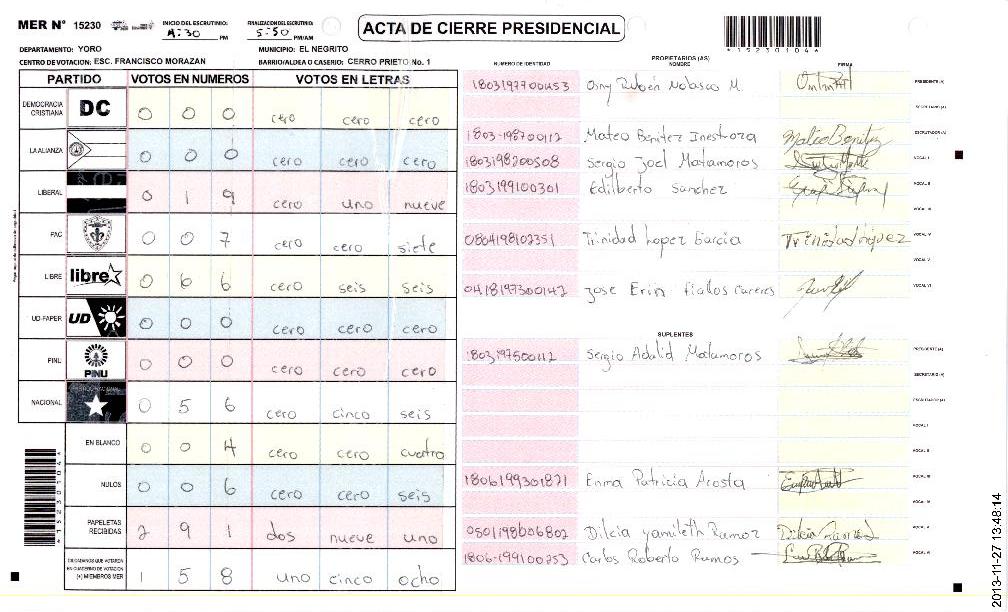 MER Nº 15230
INICIO DEL ESCRUTINIO:
4:30 PM
FINALIZACION DEL ESCRUTINIO:
5:50 PM/AM
ACTA DE CIERRE PRESIDENCIAL
*15230104*
DEPARTAMENTO: YORO
MUNICIPIO: EL NEGRITO
CENTRO DE VOTACION: ESC. FRANCISCO MORAZAN
BARRIO/ALDEA O CASERIO: CERRO PRIETO No. 1
PARTIDO VOTOS EN NUMEROS VOTOS EN LETRAS
DEMOCRACIA CRISTIANA DC 0 0 0 cero cero cero
LA ALIANZA 0 0 0 cero cero cero
LIBERAL 0 1 9 cero uno nueve
PAC 0 0 7 cero cero siete
LIBRE libre 0 6 6 cero seis seis
UD-FAPER UD 0 0 0 cero cero cero
PINU PINU 0 0 0 cero cero cero
NACIONAL 0 5 6 cero cinco seis
EN BLANCO 0 0 4 cero cero cuatro
NULOS 0 0 6 cero cero seis
PAPELETAS RECIBIDAS 2 9 1 dos nueve uno
CIUDADANOS QUE VOTARON EN CUADERNO DE VOTACION (+) MIEMBROS MER 1 5 8 uno cinco ocho
PROPIETARIOS (AS)
NUMERO DE IDENTIDAD NOMBRE FIRMA
1803197700453 Osny Rubén Nolasco M. PRESIDENTE (A)
SECRETARIO (A)
1803-198700112 Mateo Benitez Inestroza Mateo Benitez ESCRUTADOR (A)
1803198200508 Sergio Joel Matamoros VOCAL I
1803199100301 Edilberto Sanchez VOCAL II
VOCAL III
0804198102351 Trinidad Lopez Garcia VOCAL IV
VOCAL V
0418197300142 Jose Erin Fiallos VOCAL VI
SUPLENTES
1803197500112 Sergio Adalid Matamoros PRESIDENTE (A)
SECRETARIO (A)
ESCRUTADOR (A)
VOCAL I
VOCAL II
1806199301871 Enma Patricia Acosta VOCAL III
VOCAL IV
0501198006802 Dilcia Yamileth Ramoz VOCAL V
1806-199100253 Carlos Roberto Ramos VOCAL VI
2013-11-27 13:48:14